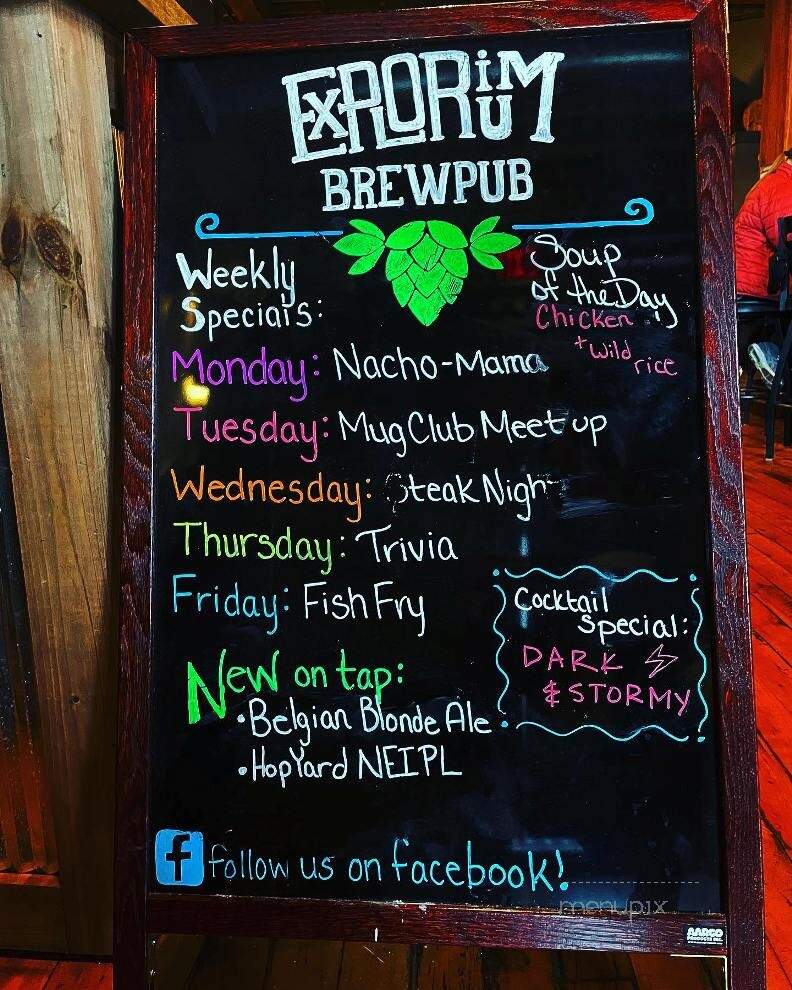 EXPLORIUM
BREWPUB
Weekly
Specials:
Soup
of the Day
Chicken
+ wild
rice
Monday: Nacho-Mama
Tuesday: Mug Club Meet up
Wednesday: Steak Nigh
Thursday: Trivia
Friday: Fish Fry
Cocktail
Special:
DARK
& STORMY
New on tap:
•Belgian Blonde Ale
•HopYard NEIPL
f follow us on facebook!
menupix
AARCO
PRODUCTS INC.